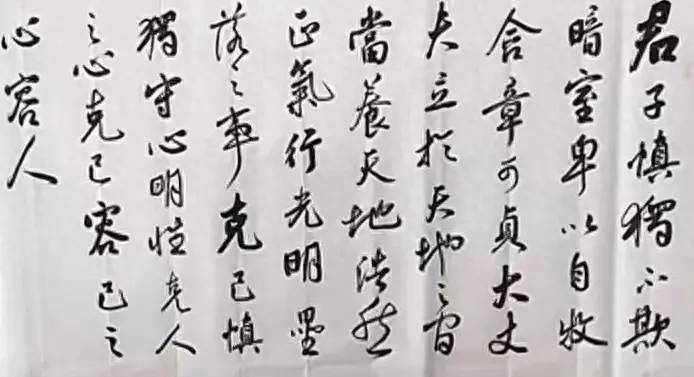 君子慎獨不欺
暗室卑以自牧
含章可貞大丈
夫立於天地之間
當養天地浩然
正氣行光明磊
落之事克己慎
獨守心明性克人
之心克己容己之
心容人